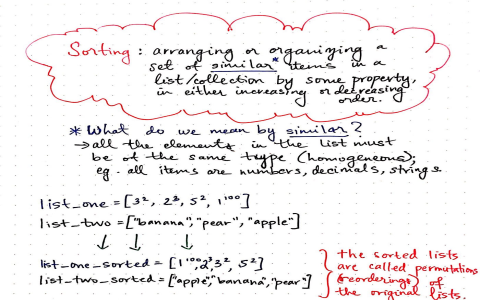 Sorting : arranging or organizing a
set of similar* items in a
list/collection by some property,
in either increasing or decreasing
order.
* What do we mean by similar?
→ all the elements in the list must
be of the same type (homogeneous);
eg. all items are numbers, decimals, strings
list_one = [3², 2³, 5², 1¹⁰⁰]
list_two = ["banana", "pear", "apple"]
↓ ↓ ↓
list_one_sorted = [1¹⁰⁰, 2³, 3², 5²]
list_two_sorted = ["apple", "banana", "pear"]
} the sorted lists
are called permutations
(reorderings) of
the original lists.